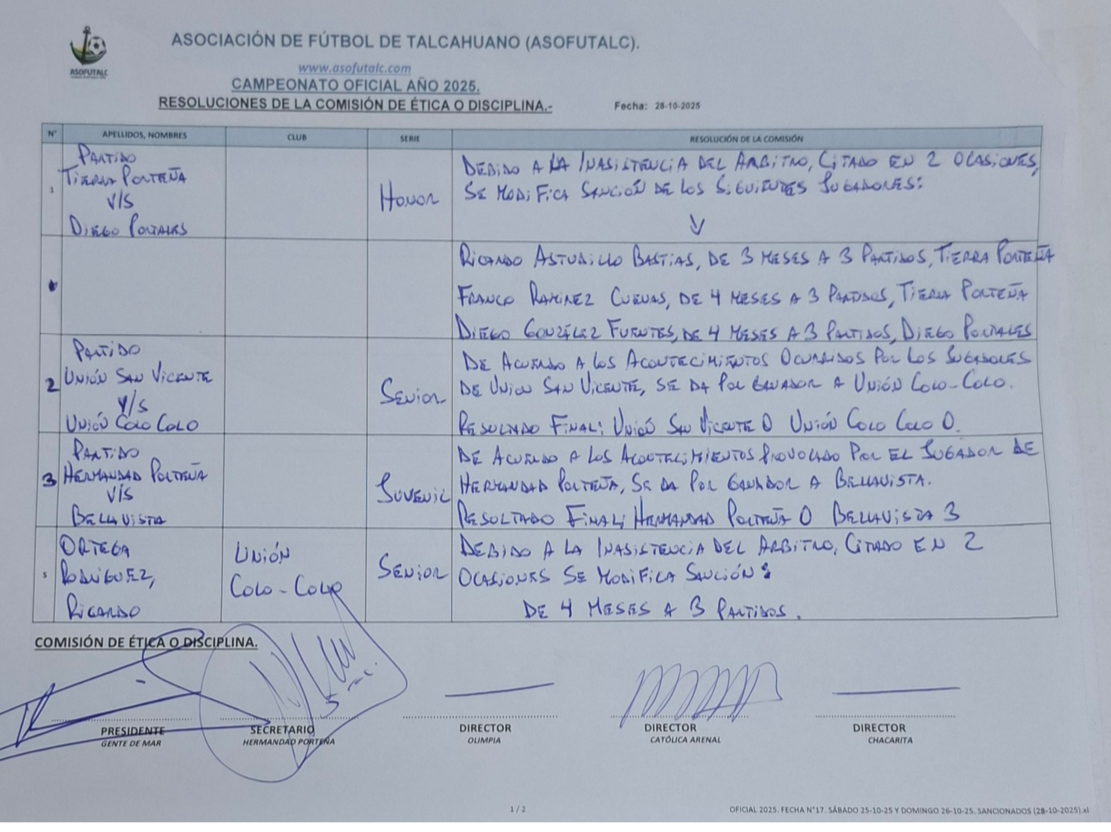 ASOFUTALC
ASOCIACIÓN DE FÚTBOL DE TALCAHUANO (ASOFUTALC).
www.asofutalc.com
CAMPEONATO OFICIAL AÑO 2025.
RESOLUCIONES DE LA COMISIÓN DE ÉTICA O DISCIPLINA.-
Fecha: 28-10-2025
N° APELLIDOS, NOMBRES CLUB SERIE RESOLUCIÓN DE LA COMISIÓN
1
PARTIDO
TIERRA PORTEÑA
V/S
DIEGO PORTALES
HONOR
DEBIDO A LA INASISTENCIA DEL ARBITRO, CITADO EN 2 OCASIONES,
SE MODIFICA SANCIÓN DE LOS SIGUIENTES JUGADORES:
RICARDO ASTUDILLO BASTIAS, DE 3 MESES A 3 PARTIDOS, TIERRA PORTEÑA
FRANCO RAMIREZ CUEVAS, DE 4 MESES A 3 PARTIDOS, TIERRA PORTEÑA
DIEGO GONZÉLEZ FUENTES, DE 4 MESES A 3 PARTIDOS, DIEGO PORTALES
2
PARTIDO
UNIÓN SAN VICENTE
V/S
UNIÓN COLO COLO
SENIOR
DE ACUERDO A LOS ACONTECIMIENTOS OCURRIDOS POR LOS JUGADORES
DE UNION SAN VICENTE, SE DA POR GANADOR A UNIÓN COLO-COLO.
RESULTADO FINAL: UNIÓ SAN VICENTE 0 UNIÓN COLO COLO 0.
3
PARTIDO
HERMANDAD PORTEÑA
V/S
BELLAVISTA
JUVENIL
DE ACUERDO A LOS ACONTECIMIENTOS PROVOCADO POR EL JUGADOR DE
HERMANDAD PORTEÑA, SE DA POR GANADOR A BELLAVISTA.
RESULTADO FINAL: HERMANDAD PORTEÑA 0 BELLAVISTA 3
5
ORTEGA
RODRIGUEZ,
RICARDO
UNIÓN
COLO-COLO
SENIOR
DEBIDO A LA INASISTENCIA DEL ARBITRO, CITADO EN 2
OCASIONES SE MODIFICA SANCIÓN:
DE 4 MESES A 3 PARTIDOS.
COMISIÓN DE ÉTICA O DISCIPLINA.
PRESIDENTE SECRETARIO DIRECTOR DIRECTOR DIRECTOR
GENTE DE MAR HERMANDAD PORTEÑA OLIMPIA CATÓLICA ARENAL CHACARITA
1 / 2
OFICIAL 2025. FECHA N°17. SÁBADO 25-10-25 Y DOMINGO 26-10-25. SANCIONADOS (28-10-2025).xl